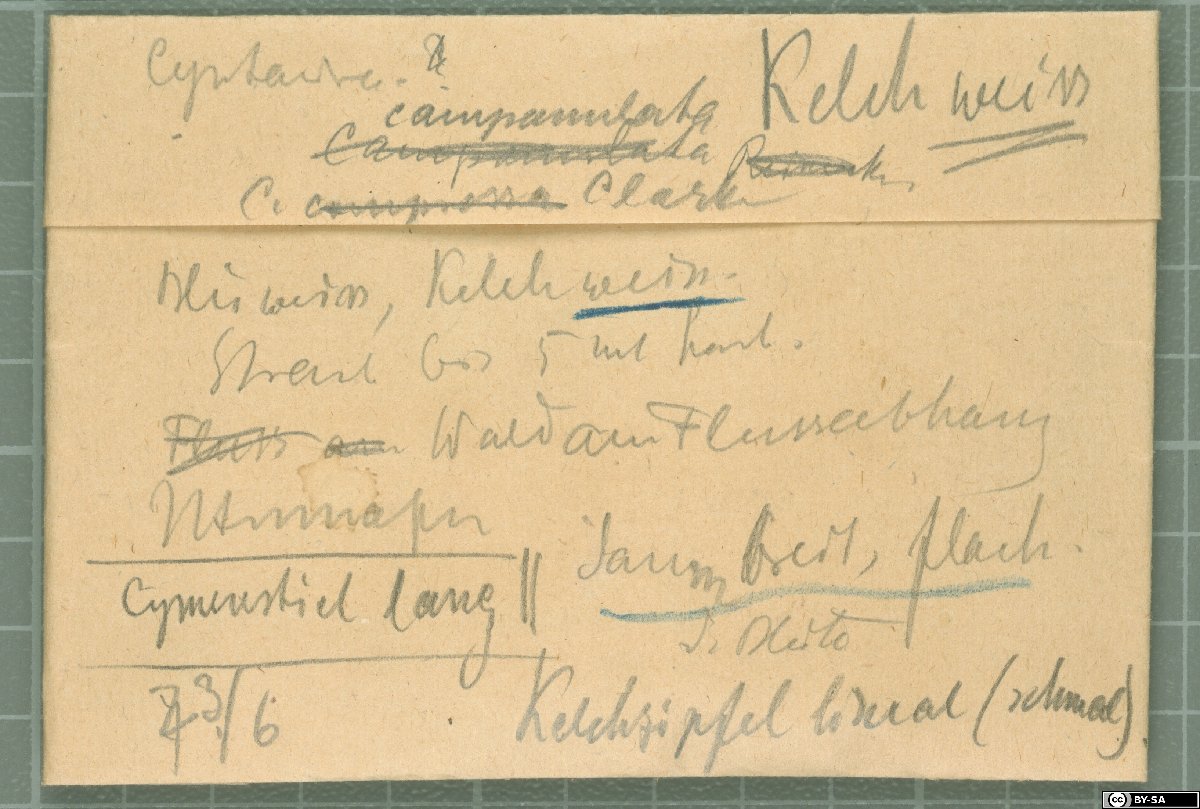 Cyrtandra.
campanulata
Kelch weiss
Campanulata Reinecke
C. compressa Clarke
Blü weiss, Kelch weiss.
Strauch bis 5 mt hoch.
Fluss am Wald am Flussabhang
Cymenstiel lang ||
Saum breit, flach.
d. Blüte
3/6
Kelchzipfel lineal (schmal)
BY-SA